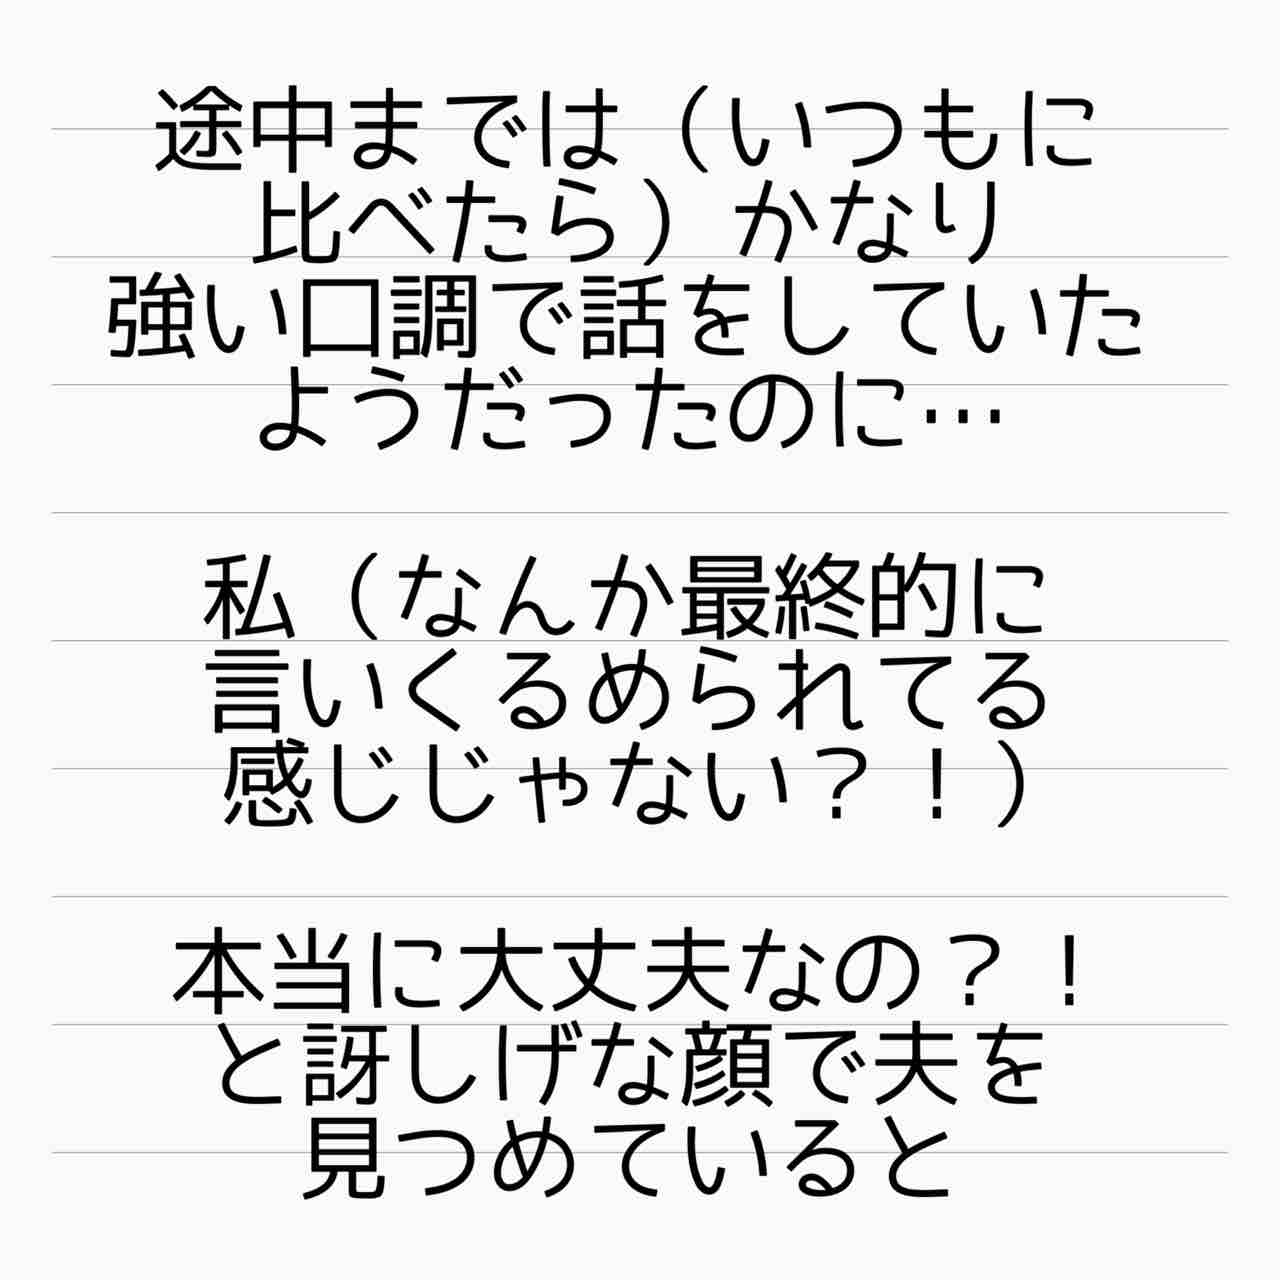 途中までは（いつもに
比べたら）かなり
強い口調で話をしていた
ようだったのに…
私（なんか最終的に
言いくるめられてる
感じじゃない？！）
本当に大丈夫なの？！
と訝しげな顔で夫を
見つめていると